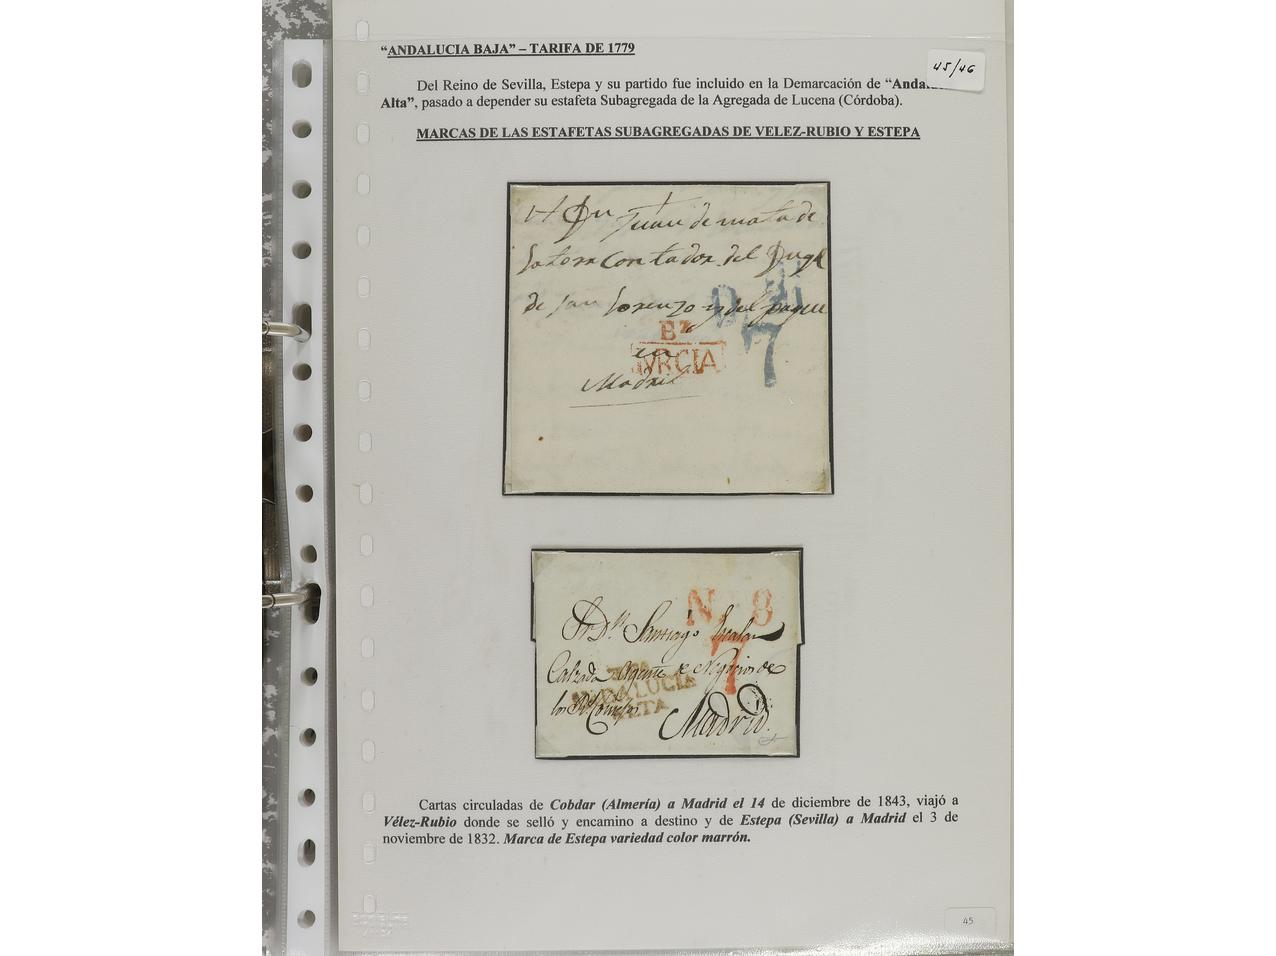 “ANDALUCIA BAJA” – TARIFA DE 1779
45/46
Del Reino de Sevilla, Estepa y su partido fue incluido en la Demarcación de “Andalu
Alta”, pasado a depender su estafeta Subagregada de la Agregada de Lucena (Córdoba).
MARCAS DE LAS ESTAFETAS SUBAGREGADAS DE VELEZ-RUBIO Y ESTEPA
Juan de mata de
Contador del
de San Lorenzo y del
Bz
7
en
MVRCIA
Madrid
N. 8
Santiago
7
Calzada Agente de Negocios de
ANDALUCIA
los Rs Consejos
ALTA
Madrid.
Cartas circuladas de Cobdar (Almería) a Madrid el 14 de diciembre de 1843, viajó a
Vélez-Rubio donde se selló y encamino a destino y de Estepa (Sevilla) a Madrid el 3 de
noviembre de 1832. Marca de Estepa variedad color marrón.
45